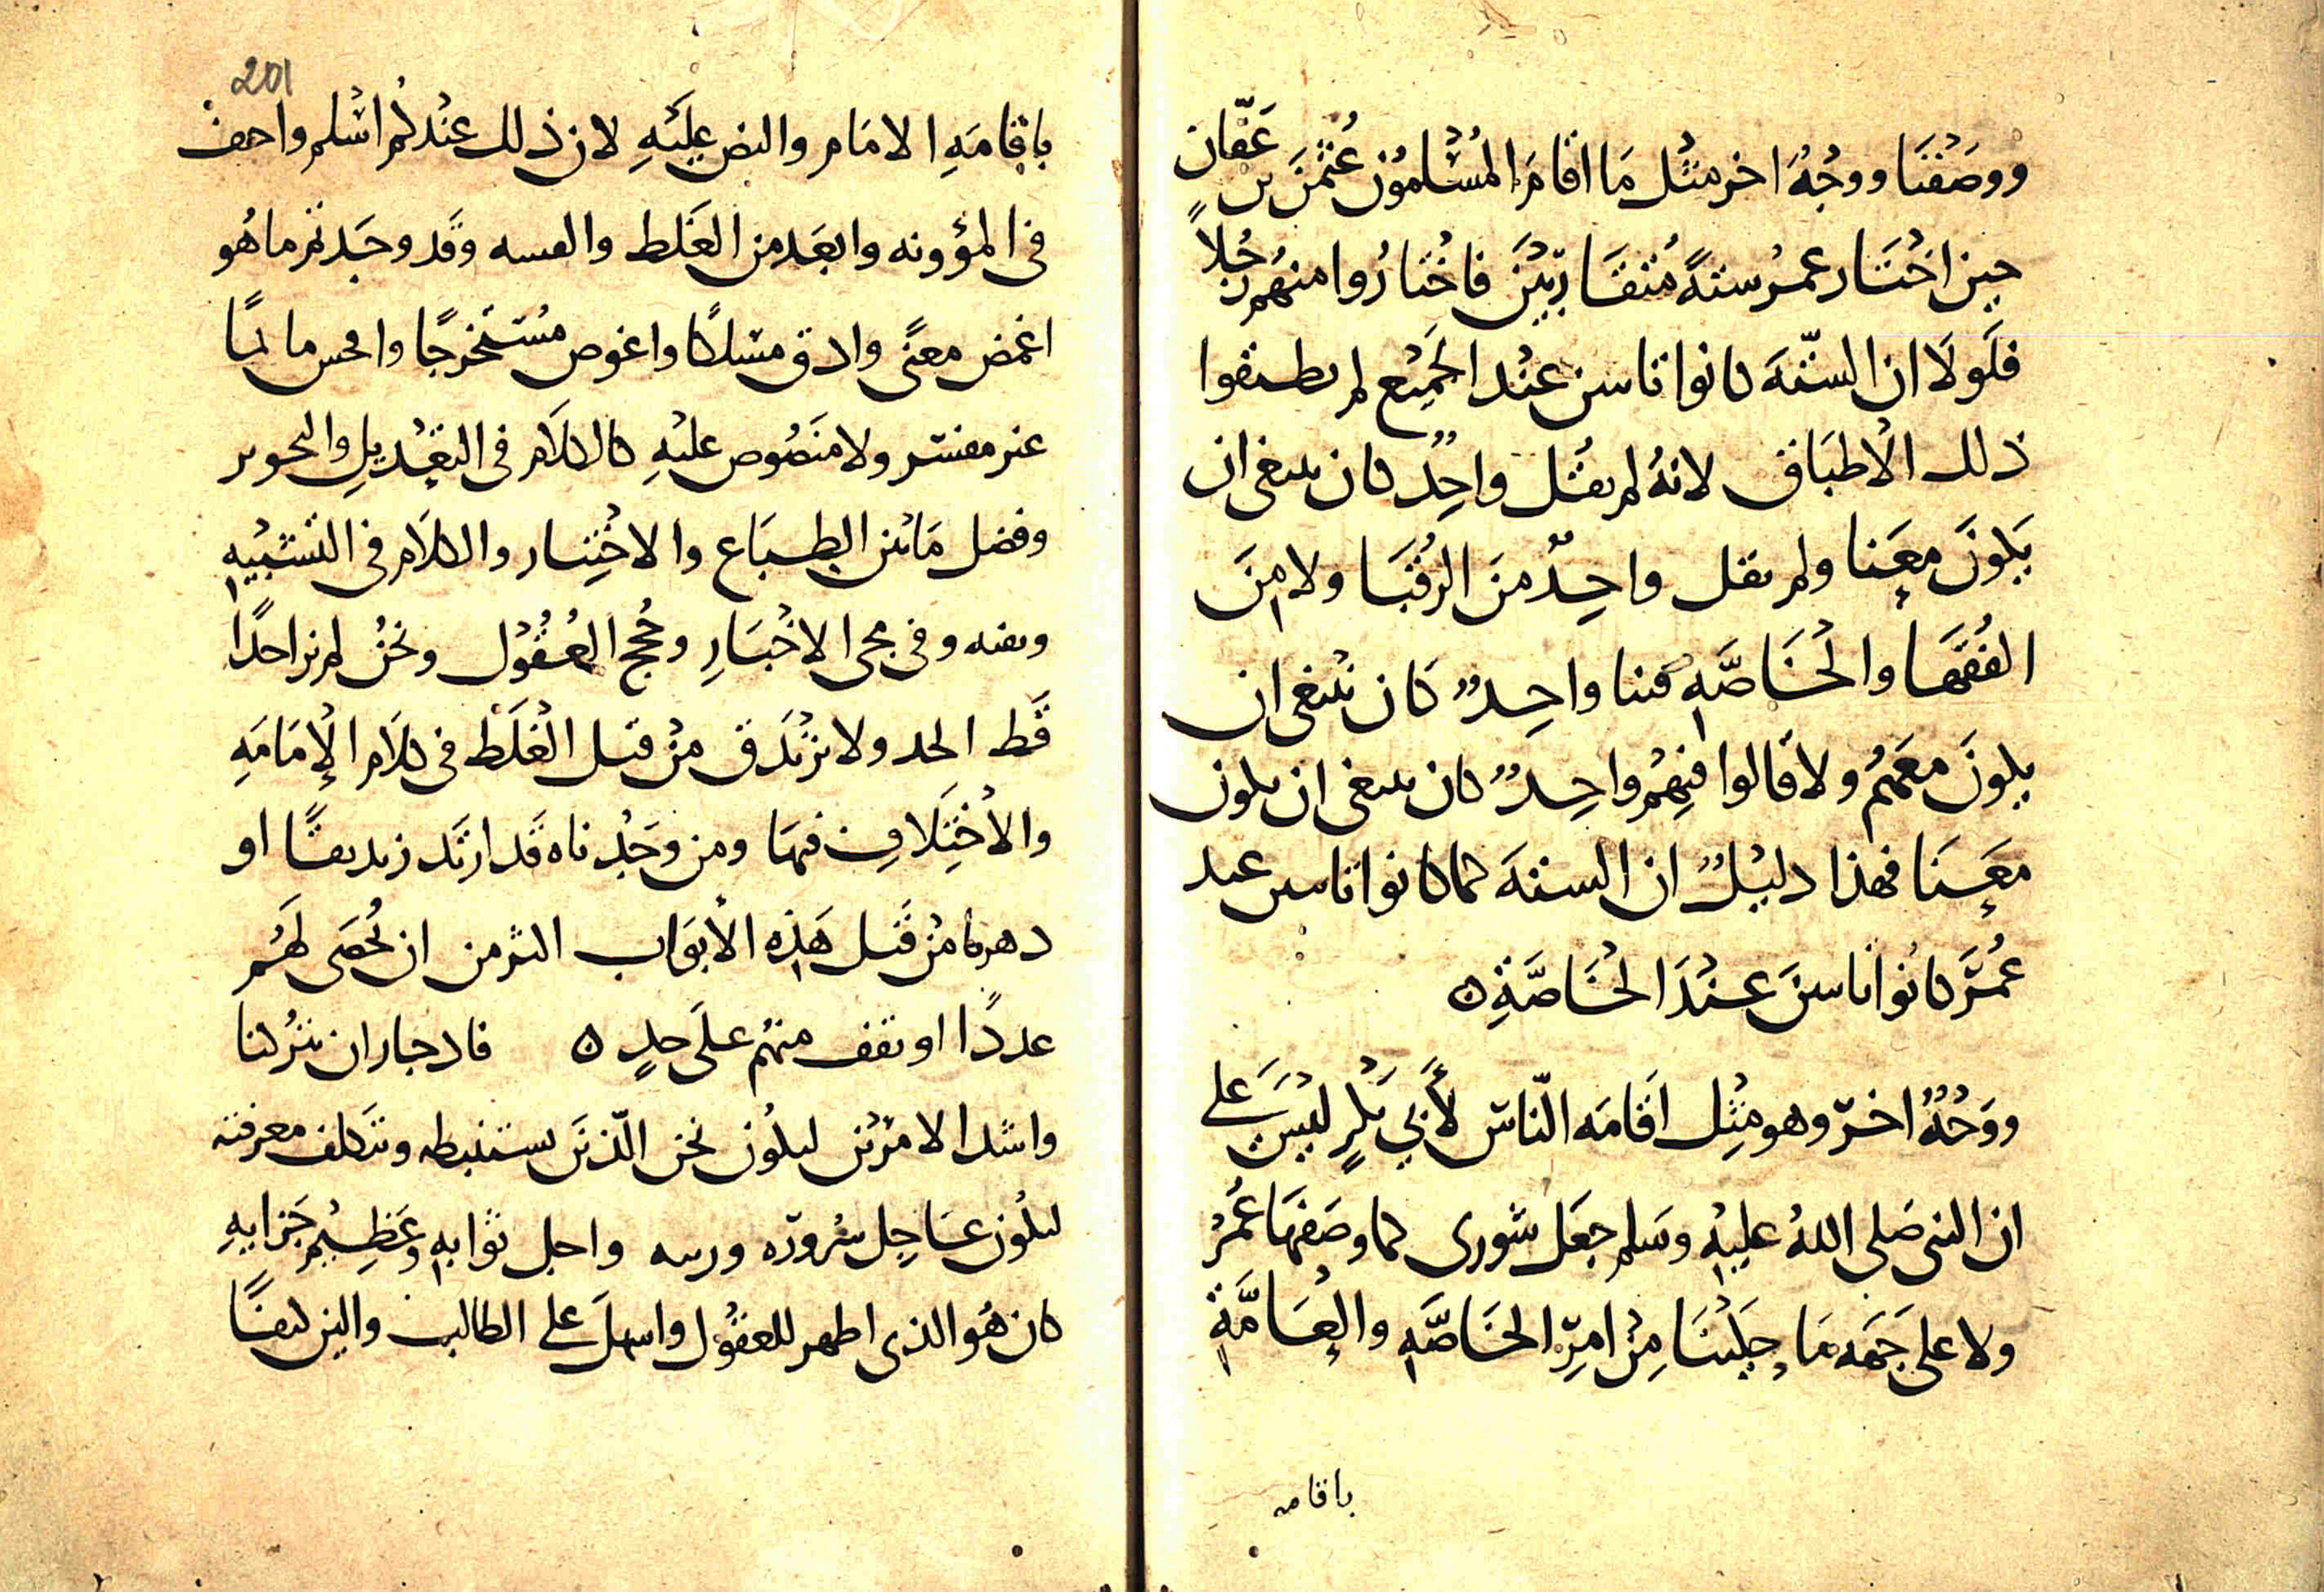 ووصفنا ووجه اخر مثل ما اقام المسلمون عثمن بن عفان
حين اختار عمر ستة متقاربين فاختاروا منهم رجلاً
فلولا ان الستة كانوا بائنين عند الجميع لم يطبقوا
ذلك الاطباق لانه لم يقل واحد كان ينبغى ان
يكون معنا ولم يقل واحد من الرقبا ولا من
الفقها والخاصه فينا واحد كان ينبغى ان
يكون معهم ولا قالوا فيهم واحد كان ينبغى ان يكون
معنا فهذا دليل ان الستة كما كانوا بائنين عند
عمر كانوا بائنين عند الخاصة ه
ووجه اخر وهو مثل اقامه الناس لأبي بكر ليس على
ان النبى صلى الله عليه وسلم جعل شورى كما وصفها عمر
ولا على جهه ما حكينا من امر الخاصه والعامة
باقامه
201
باقامه الامام والنص عليه لان ذلك عندكم اسلم واخف
فى المؤونه وابعد من الغلط والفتنه وقد وجدتم ما هو
اغمض معنى وادق مسلكا واغوص مستخرجا وافحش ماثما
غير مفسر ولا منصوص عليه كالكلام فى التعديل والتجوير
وفضل ما بين الطباع والاختيار والكلام فى التشبيه
ونفيه وفى مجى الاخبار وحجج العقول ونحن لم نر احدا
قط الحد ولا تزندق من قبل الغلط فى كلام الإمامه
والاختلاف فيها ومن وجدناه قد ارتد زنديقا او
دهريا من قبل هذه الابواب اكثر من ان نحصى لهم
عددا او نقف منهم على حد ه فاذ جاز ان يتركنا
واشد الامرين ليكون نحن الذين نستنبطه ونتكلف معرفته
ليكون عاجل سروره وربحه واجل ثوابه وعظيم جزايه
كان هو الذى اظهر للعقول واسهل على الطالب والين كنفا